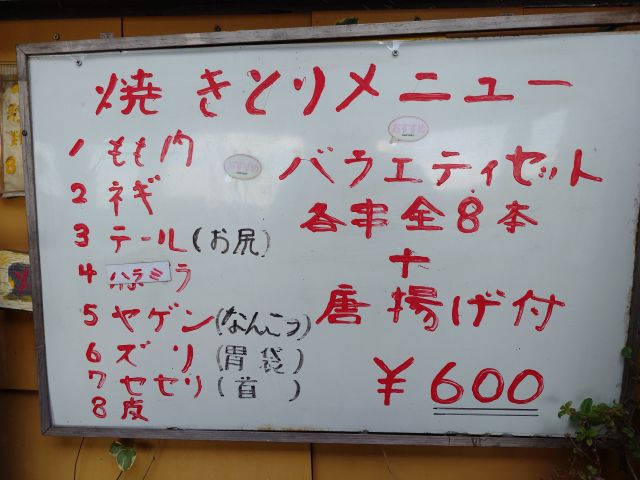 焼きとりメニュー
1 もも肉
2 ネギ
3 テール(お尻)
4 ハラミ
5 ヤゲン(なんこつ)
6 ズリ(胃袋)
7 セセリ(首)
8 皮
おすすめ
おすすめ
バラエティセット
各串全8本
+
唐揚げ付
¥600